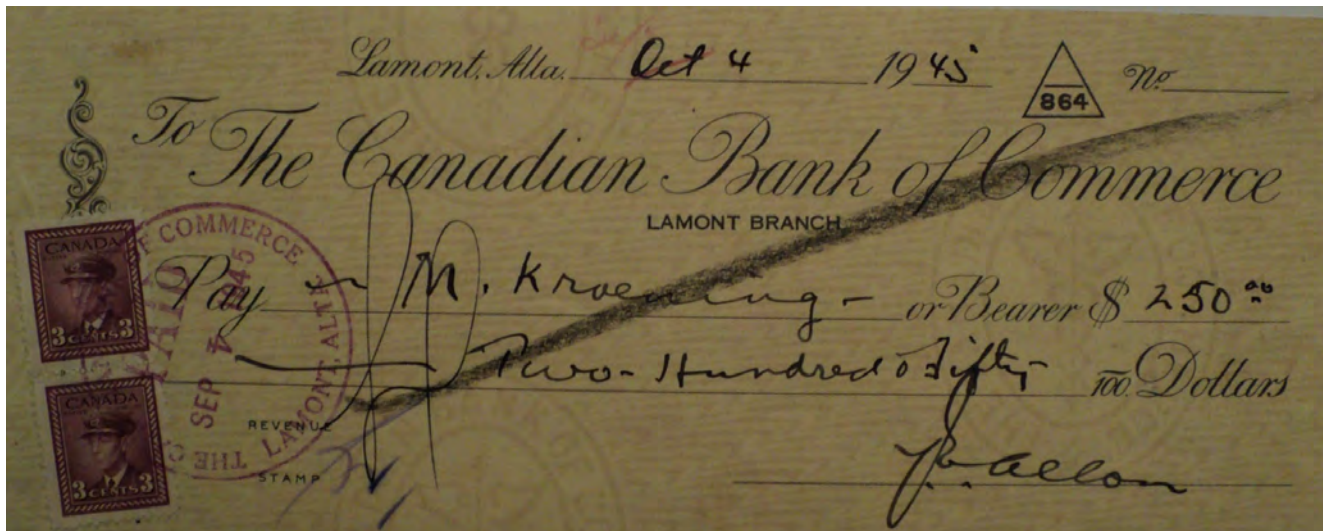 Lamont, Alta. Oct 4 1945 864 No.
To The Canadian Bank of Commerce
LAMONT BRANCH
Pay M. Kroening - or Bearer $ 250 00
Two - Hundred & Fifty 100 Dollars
REVENUE
STAMP
CANADA
3 CENTS 3
CANADA
3 CENTS 3
OF COMMERCE
PAID
SEP 4 1945
THE
LAMONT, ALTA